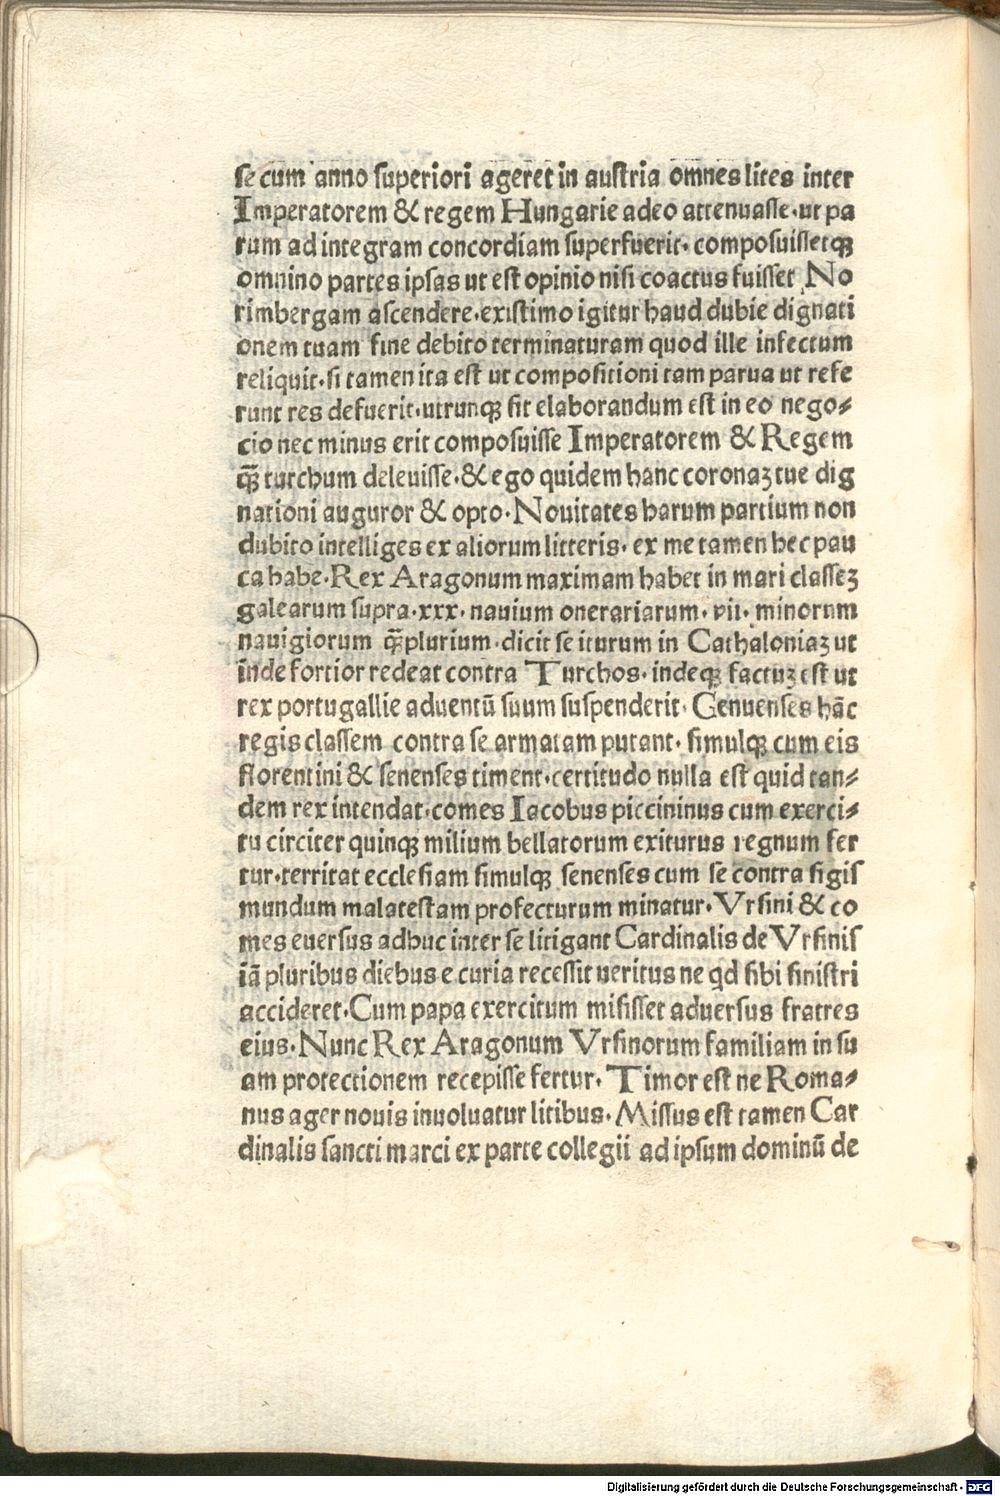 se cum anno superiori ageret in austria omnes lites inter
Imperatorem & regem Hungarie adeo attenuasse·ut pa
rum ad integram concordiam superfuerit· composuissetqꝫ
omnino partes ipsas ut est opinio nisi coactus fuisset No
rimbergam ascendere·existimo igitur haud dubie dignati
onem tuam fine debito terminaturam quod ille infectum
reliquit·si tamen ita est ut compositioni tam parua ut refe
runt res defuerit·utrunqꝫ sit elaborandum est in eo nego⸗
cio nec minus erit composuisse Imperatorem & Regem
qꝫ̄ turchum deleuisse·& ego quidem hanc coronaꝫ tue dig
nationi auguror & opto·Nouitates harum partium non
dubito intelliges ex aliorum litteris· ex me tamen hec pau
ca habe·Rex Aragonum maximam habet in mari classeꝫ
galearum supra·xxx· nauium onerariarum· vii· minorum
nauigiorum qꝫ̄plurium·dicit se iturum in Cathaloniaꝫ ut
inde fortior redeat contra Turchos· indeqꝫ factuꝫ est ut
rex portugallie aduentū suum suspenderit· Genuenses hāc
regis classem contra se armatam putant· simulqꝫ cum eis
florentini & senenses timent·certitudo nulla est quid tan⸗
dem rex intendat·comes Iacobus piccininus cum exerci⸗
tu circiter quinqꝫ milium bellatorum exiturus regnum fer
tur·territat ecclesiam simulqꝫ senenses cum se contra sigis
mundum malatestam profecturum minatur· Vrsini & co
mes euersus adhuc inter se litigant Cardinalis de Vrsinis
iā pluribus diebus e curia recessit ueritus ne qd sibi sinistri
accideret·Cum papa exercitum misisset aduersus fratres
eius· Nunc Rex Aragonum Vrsinorum familiam in su
am protectionem recepisse fertur· Timor est ne Roma⸗
nus ager nouis inuoluatur litibus· Missus est tamen Car
dinalis sancti marci ex parte collegii ad ipsum dominū de
Digitalisierung gefördert durch die Deutsche Forschungsgemeinschaft - DFG